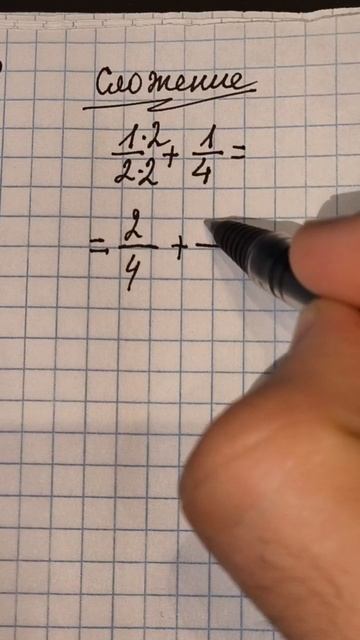 Сложение
1·2/2·2 + 1/4 =
= 2/4 +